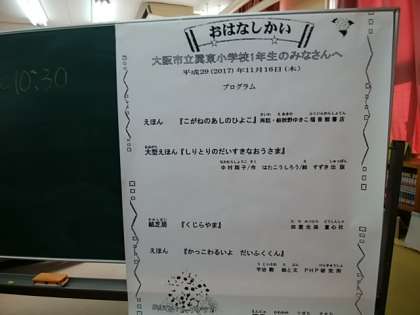 ~10:30
おはなしかい
大阪市立巽東小学校1年生のみなさんへ
平成29(2017)年11月16日(木)
プログラム
えほん 『こがねのあしのひよこ』 再話・絵 秋野ゆきこ 福音館書店
大型えほん 『しりとりのだいすきなおうさま』
中村翔子/作 はたこうしろう/絵 すずき出版
紙芝居 『くじらやま』
童心社
えほん 『かっこわるいよ だいふくくん』
宇治勲 絵と文 PHP研究所